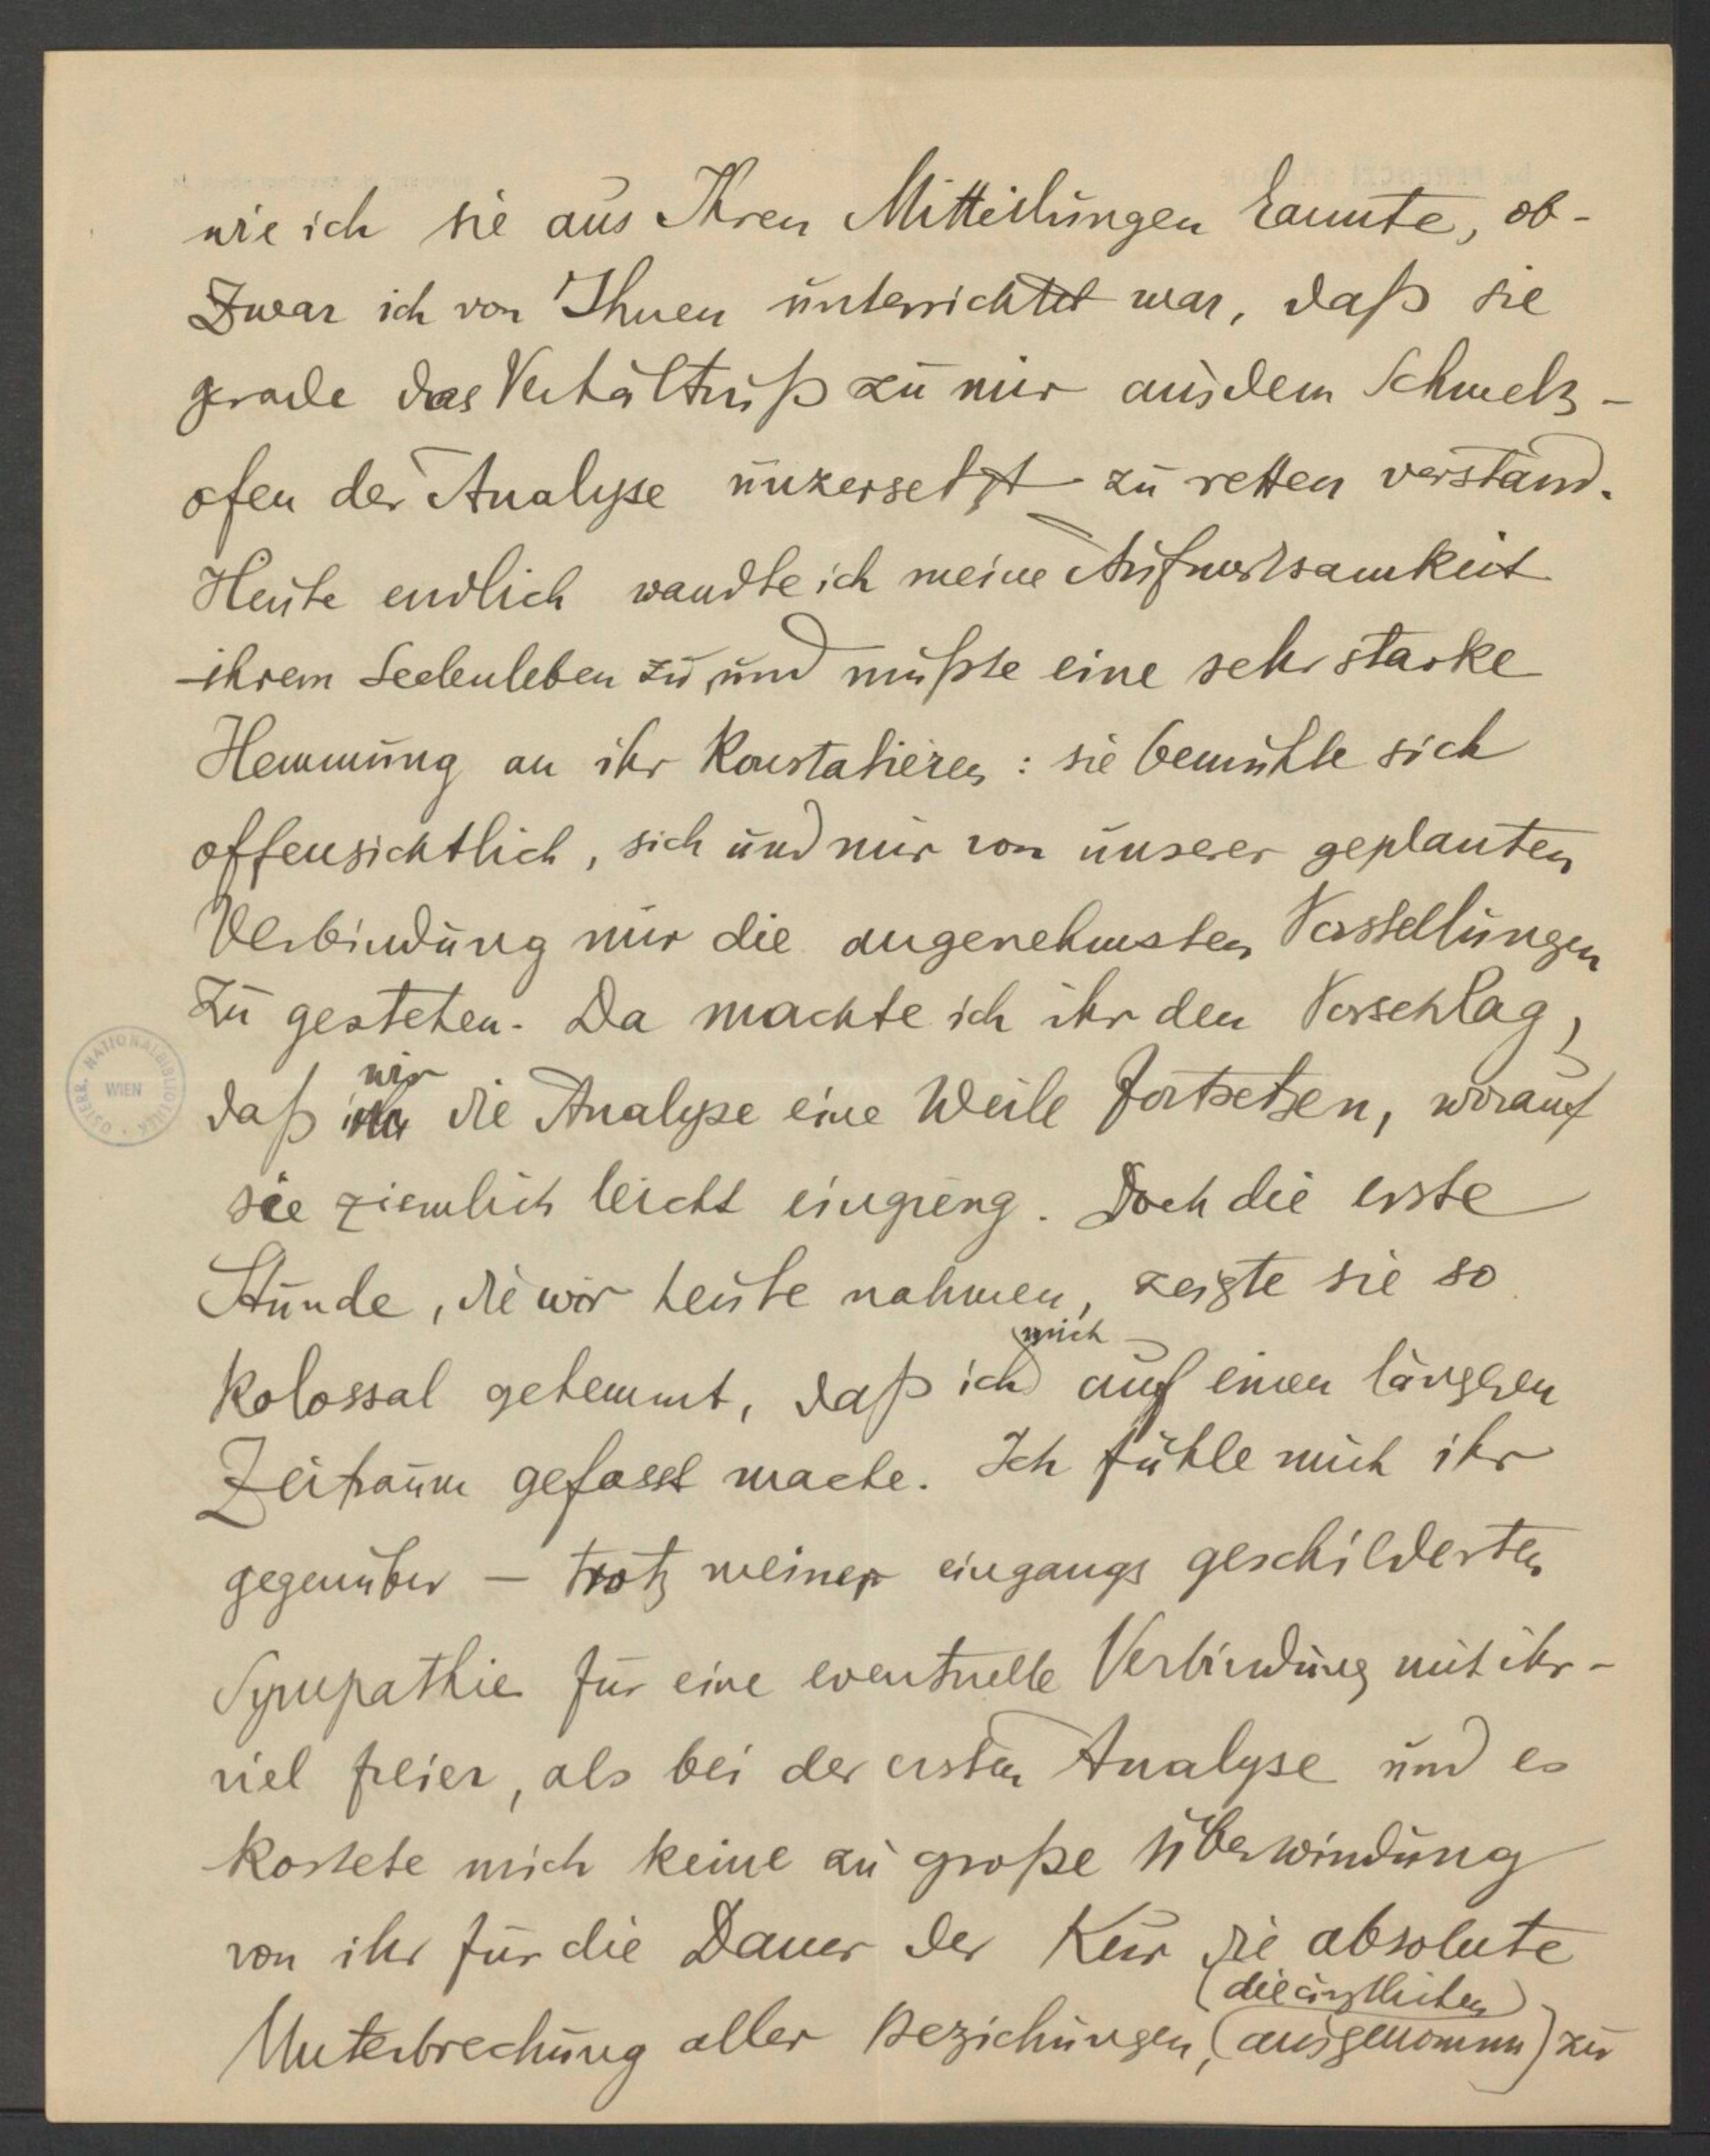 wie ich sie aus Ihren Mitteilungen kannte, ob-
zwar ich von Ihnen unterrichtet war, daß sie
gerade das Verhältniß zu mir aus dem Schmelz-
ofen der Analyse unzersetzt zu retten verstand.
Heute endlich wandte ich meine Aufmerksamkeit
ihrem Seelenleben zu und mußte eine sehr starke
Hemmung an ihr konstatieren: sie bemühte sich
offensichtlich, sich und mir von unserer geplanten
Verbindung nur die angenehmsten Vorstellungen
zu gestehen. Da machte ich ihr den Vorschlag,
daß wir die Analyse eine Weile fortsetzen, worauf
sie ziemlich leicht eingieng. Doch die erste
Stunde, die wir heute nahmen, zeigte sie so
kolossal gehemmt, daß ich mich auf einen längeren
Zeitraum gefasst mache. Ich fühle mich ihr
gegenüber – trotz meiner eingangs geschilderten
Sympathie für eine eventuelle Verbindung mit ihr –
viel freier, als bei der ersten Analyse und es
kostete mich keine zu große Überwindung
von ihr für die Dauer der Kur die absolute
Unterbrechung aller Beziehungen, (die ärztlichen ausgenommen) zu
ÖSTERR. NATIONALBIBLIOTHEK WIEN